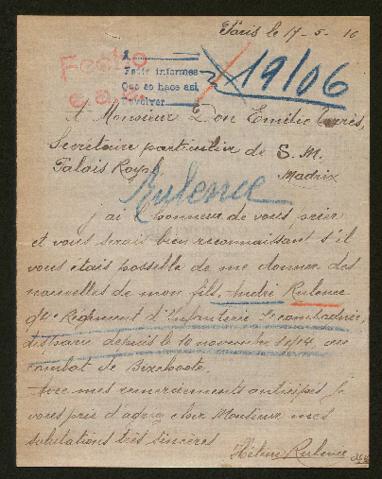 Paris le 17-5-16
Fecho
A
Pedir informes
Que se hace así
Devolver
19/06
A Monsieur Don Emilio
Secrétaire particulier de S. M.
Palais Royal
Madrid
Rulence
J'ai l'honneur de vous prier
et vous serais bien reconnaissant s'il
vous était possible de me donner des
nouvelles de mon fils, André Rulence
Régiment d'Infanterie
disparu depuis le 10 novembre 1914 au
combat de Bixchoote.
Avec mes remerciements anticipés je
vous prie d'agréer cher Monsieur mes
salutations très sincères
Rulence